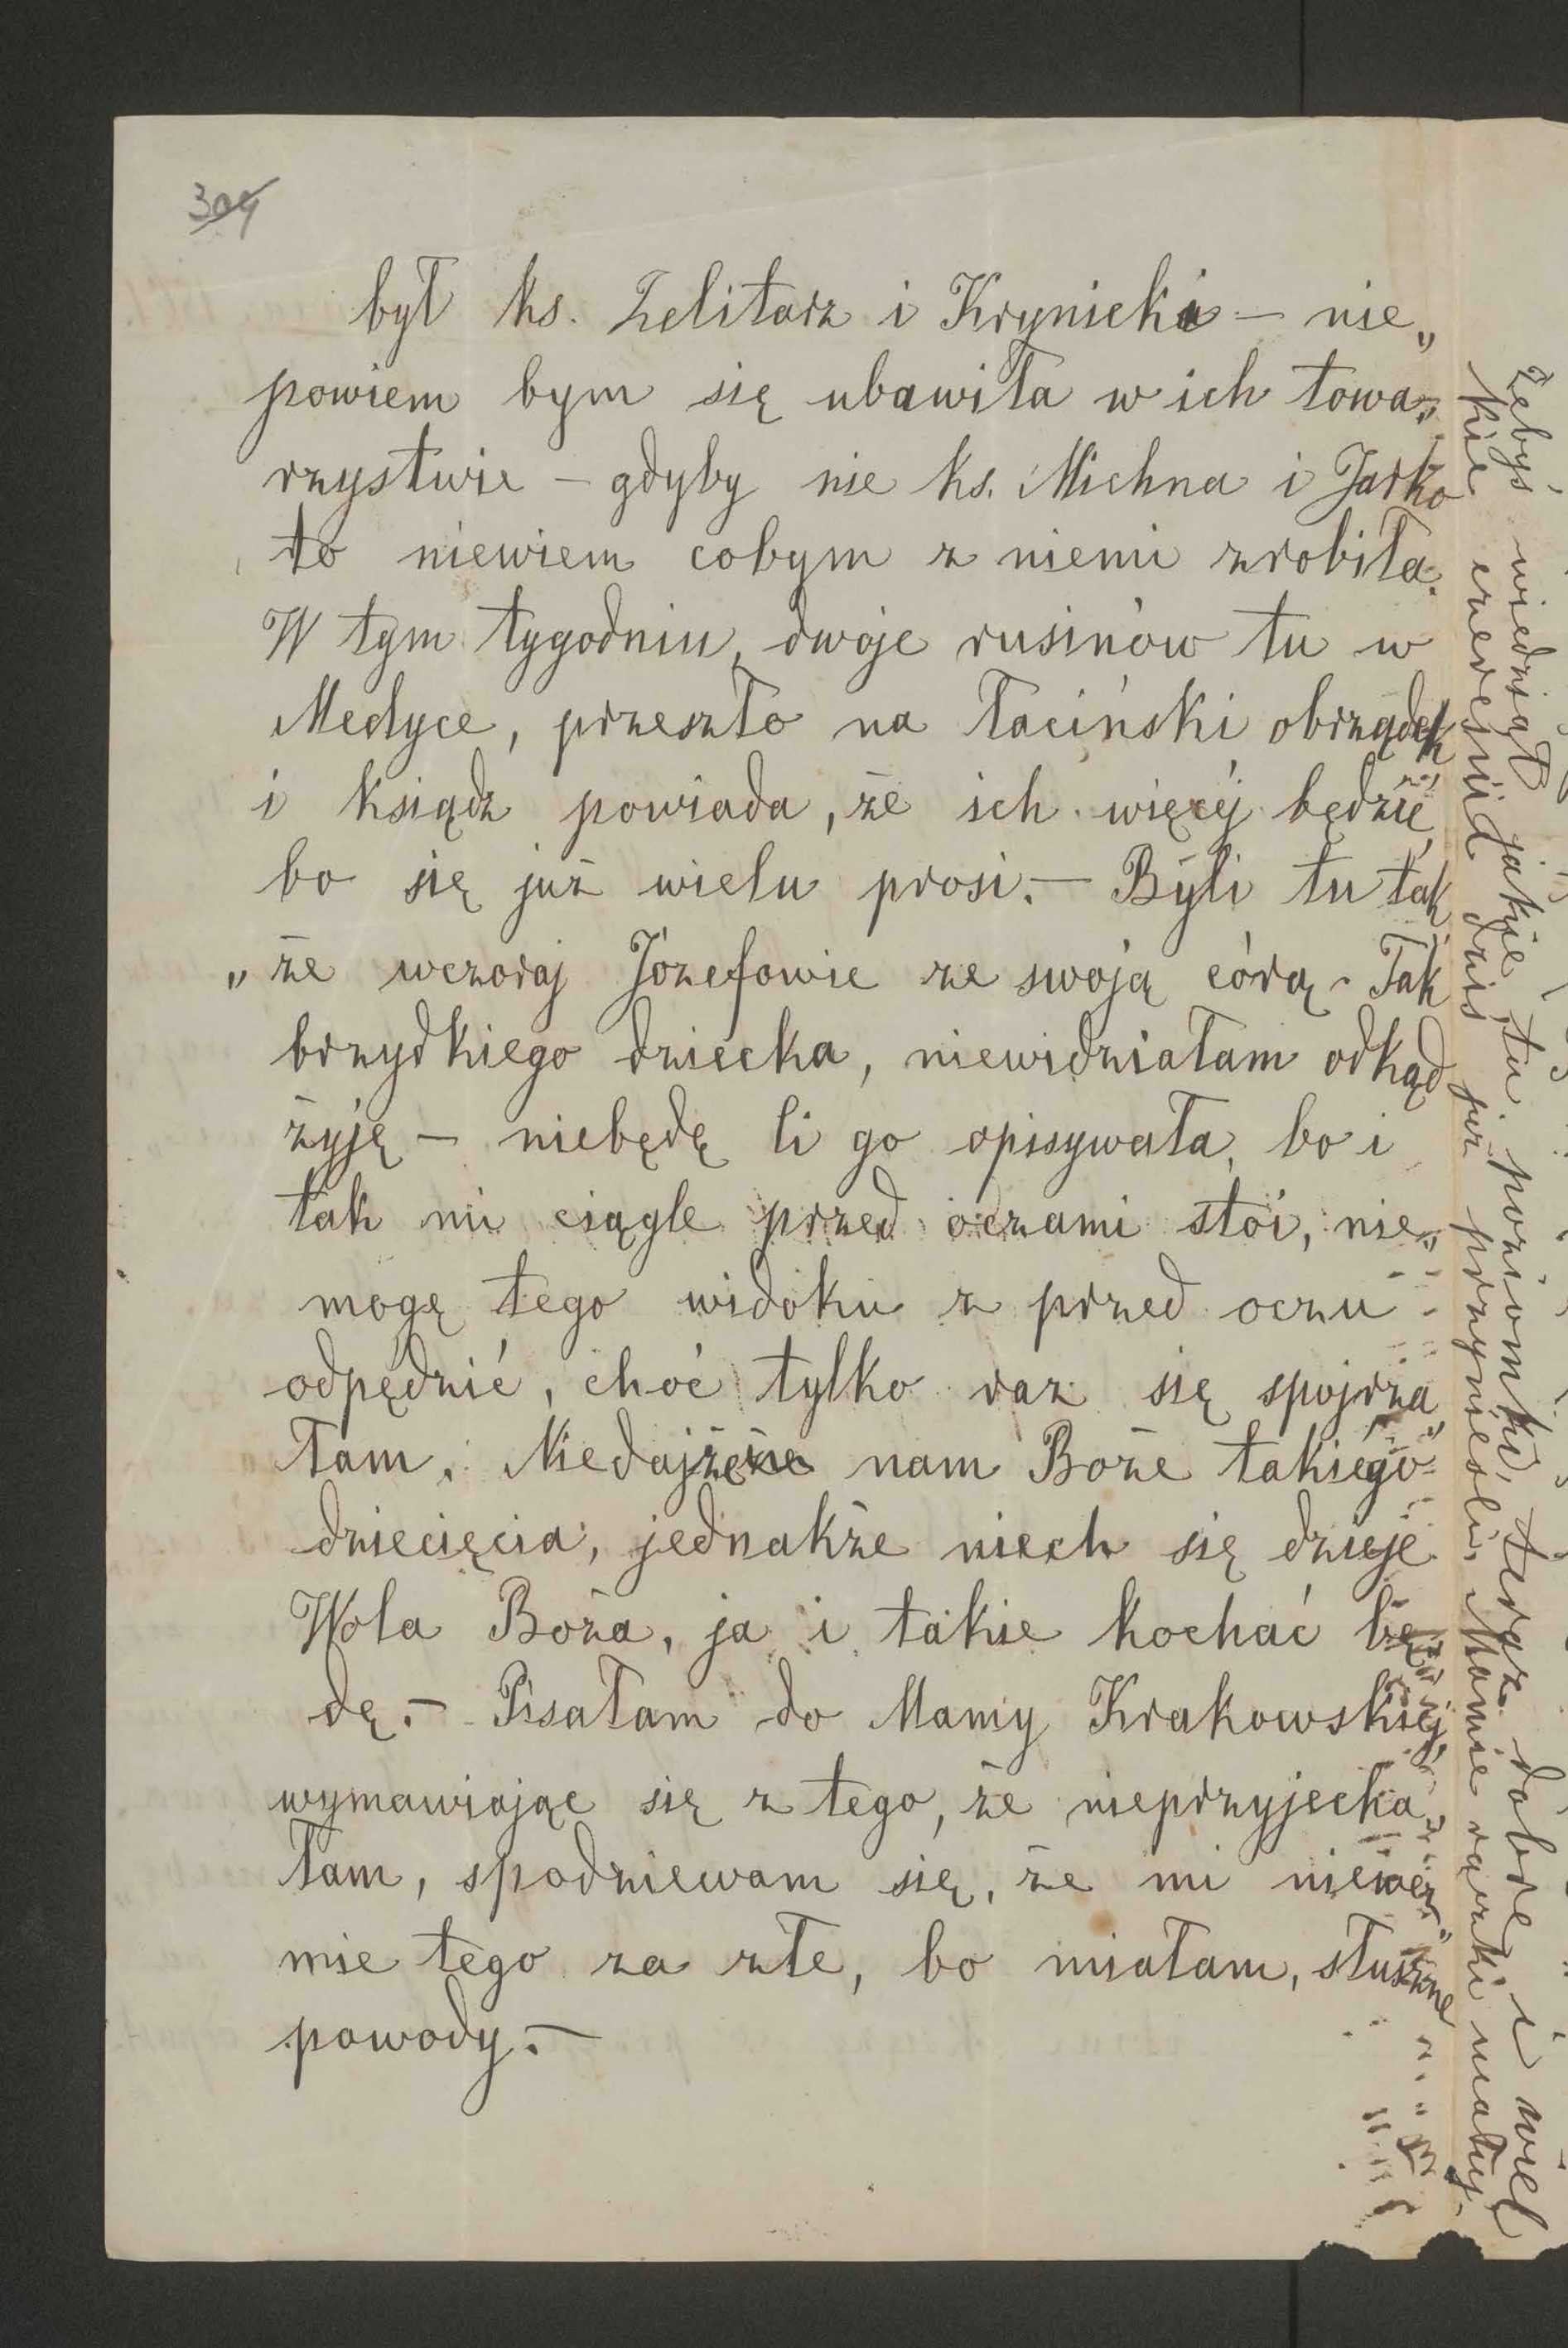 304
był ks. Zelitarz i Krynicki – nie„
powiem bym się ubawiła w ich towa„
rzystwie – gdyby nie ks. Michna i Jarko
to niewiem cobym z niemi zrobiła.
W tym tygodniu, dwoje rusinów tu w
Medyce, przeszło na łaciński obrządek
i ksiądz powiada, że ich więcéj będzie,
bo się już wielu prosi. – Byli tu tak„
„że wczoraj Józefowie ze swoją córą – Tak
brzydkiego dziecka, niewidziałam odkąd
żyję – niebędę Ci go opisywała, bo i
tak mi ciągle przed oczami stoi, nie„
mogę tego widoku z przed oczu
odpędzić, choć tylko raz się spojrza„
łam. Niedajżeże nam Boże takiego
dziecięcia, jednakże niech się dzieje
Wola Boża, ja i takie kochać bę„
dę. – Pisałam do Mamy Krakowskiéj,
wymawiając się z tego, że nieprzyjecha„
łam, spodziewam się, że mi niewez„
mie tego za złe, bo miałam, słuszne
powody. –
Żebyś wiedział jakie tu poziomki, teraz dobre i wiel
kie czereśnie dziś już przynieśli, Mamie rączki całuję.